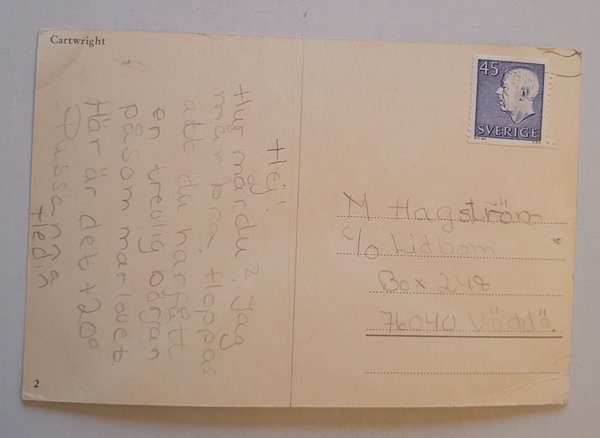 Cartwright
Hej!
Hur mår du? Jag
mår bra. Hoppas
att du har fått
en trevlig början
på sommarlovet.
Här är det +20°
Pussarna
Hedin
2
45
SVERIGE
M Hagström
c/o Lidbom
Box 248
76040 Väddö.